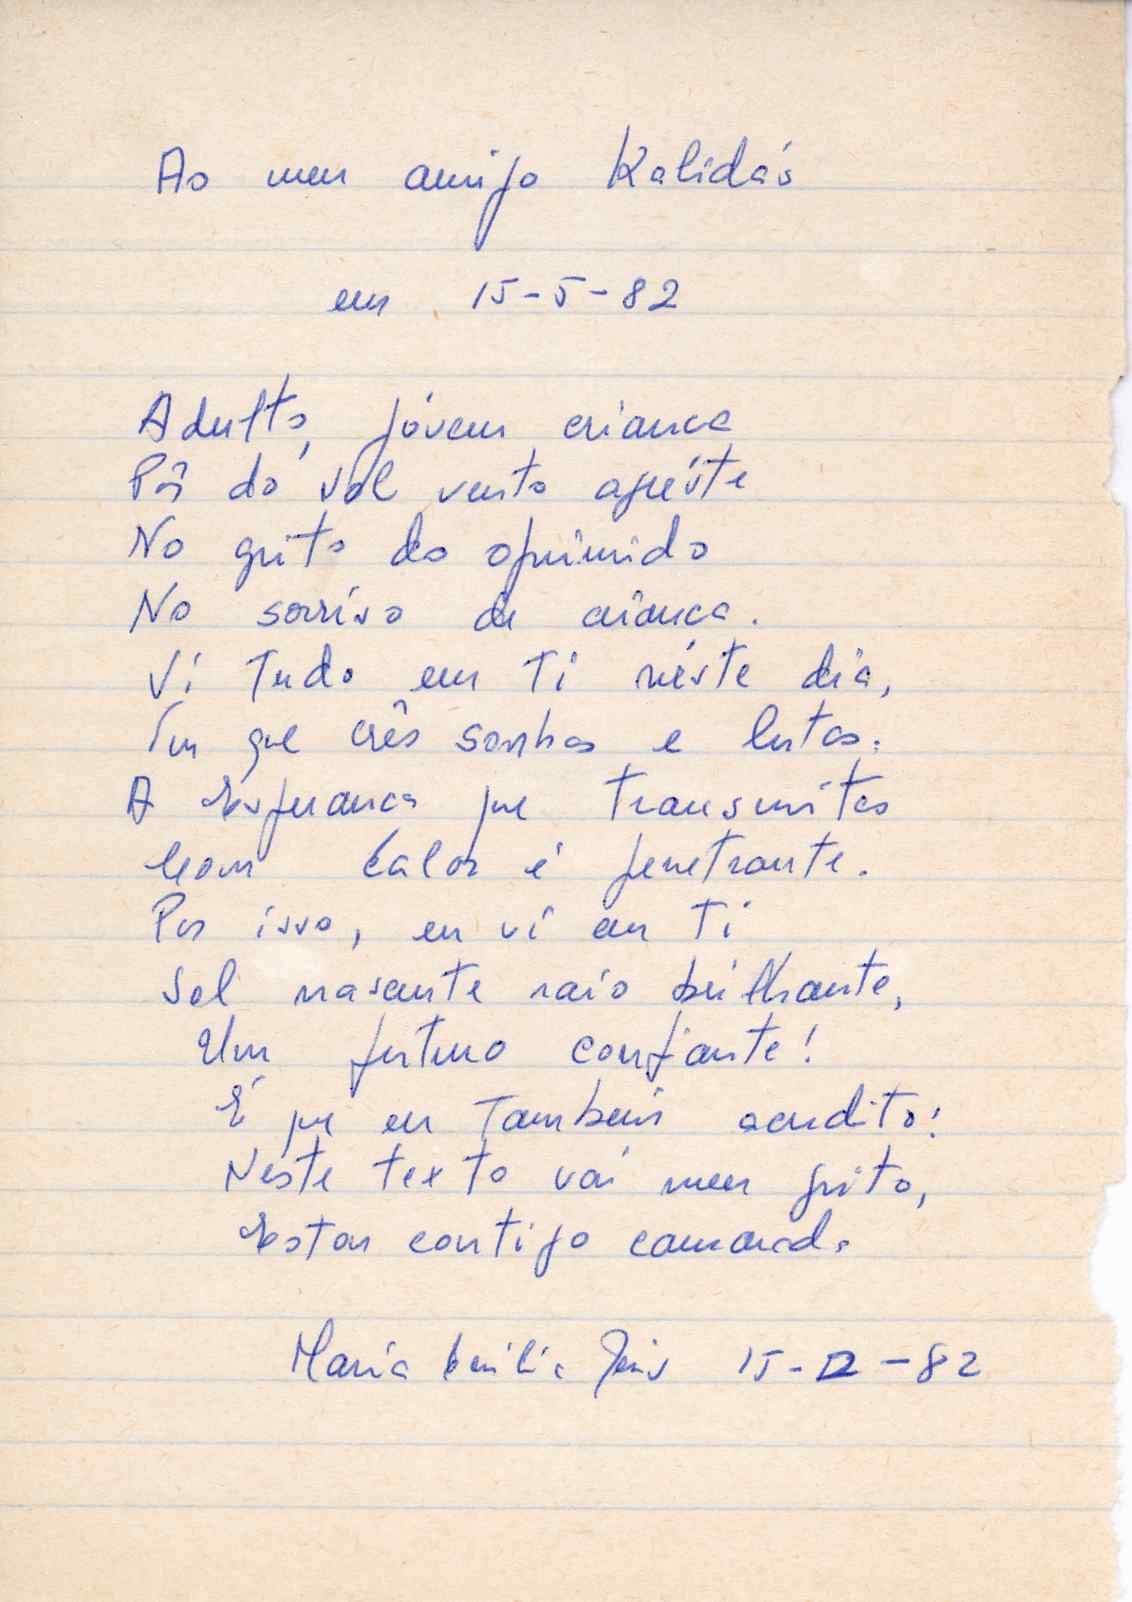 Ao meu amigo Kalidás
em 15-5-82
Adulto, jóvem criança
Pôr do sol vento agréste
No grito do oprimido
No sorriso de criança.
Ví tudo em ti néste dia,
Tu que crês sonhas e lutas.
A Esperança que transmites
Com calor é penetrante.
Por isso, eu ví em ti
Sol nascente raio brilhante,
Um futuro confiante!
É que eu também acredito!
Neste texto vai meu grito,
Estou contigo camarada
Maria Emilia 15- -82